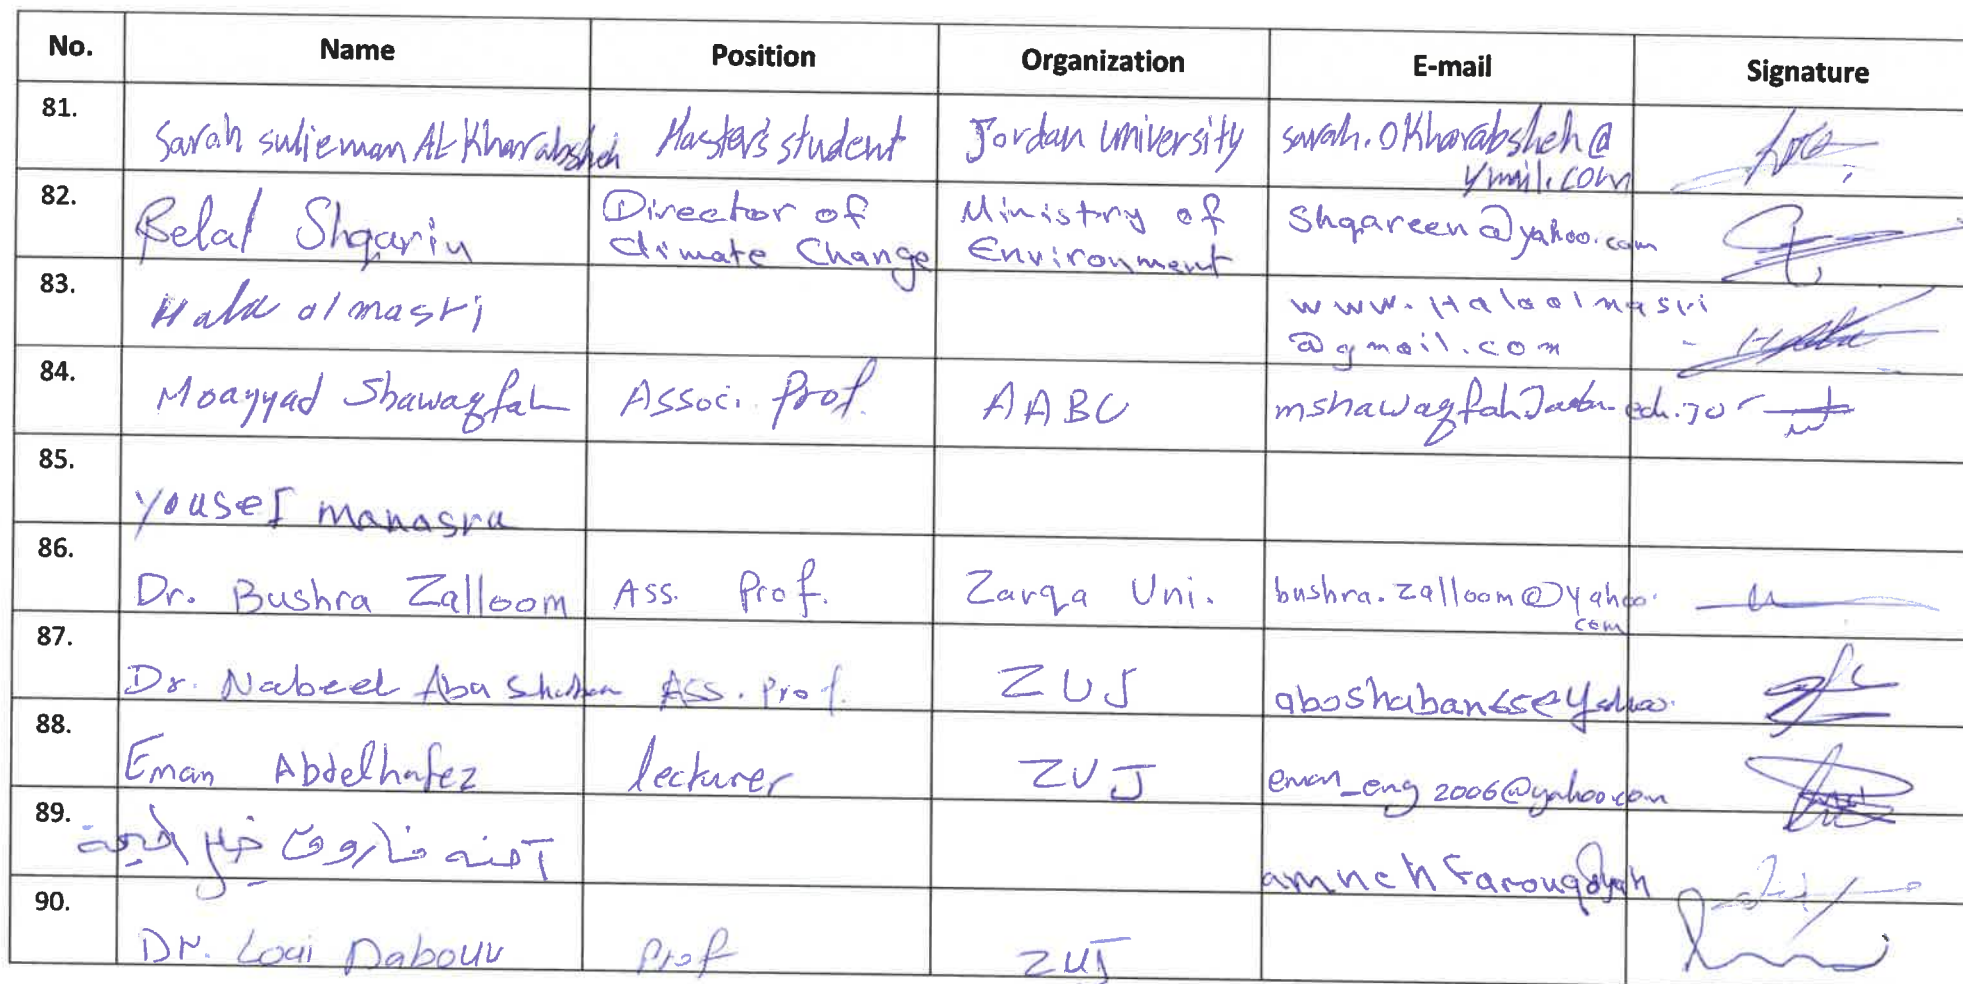 No. Name Position Organization E-mail Signature
81. Sarah sulieman AL Kharabsheh Master's student Jordan University sarah.0Kharabsheh@
ymail.com
82. Belal Shqarin Director of Climate Change Ministry of Environment Shqareen@yahoo.com
83. Hala almasri www.Halaalmasri
@gmail.com
84. Moayyad Shawaqfah Associ. Prof. AABU
85. yousef manasra
86. Dr. Bushra Zalloom Ass. Prof. Zarqa Uni. bushra.zalloom@yahoo.
com
87. Dr. Nabeel Abu Ass. Prof. ZUJ
88. Eman Abdelhafez lecturer ZUJ eman_eng2006@yahoo.com
89. آمنه فاروق
90. Dr. Loai Dabour Prof ZUJ